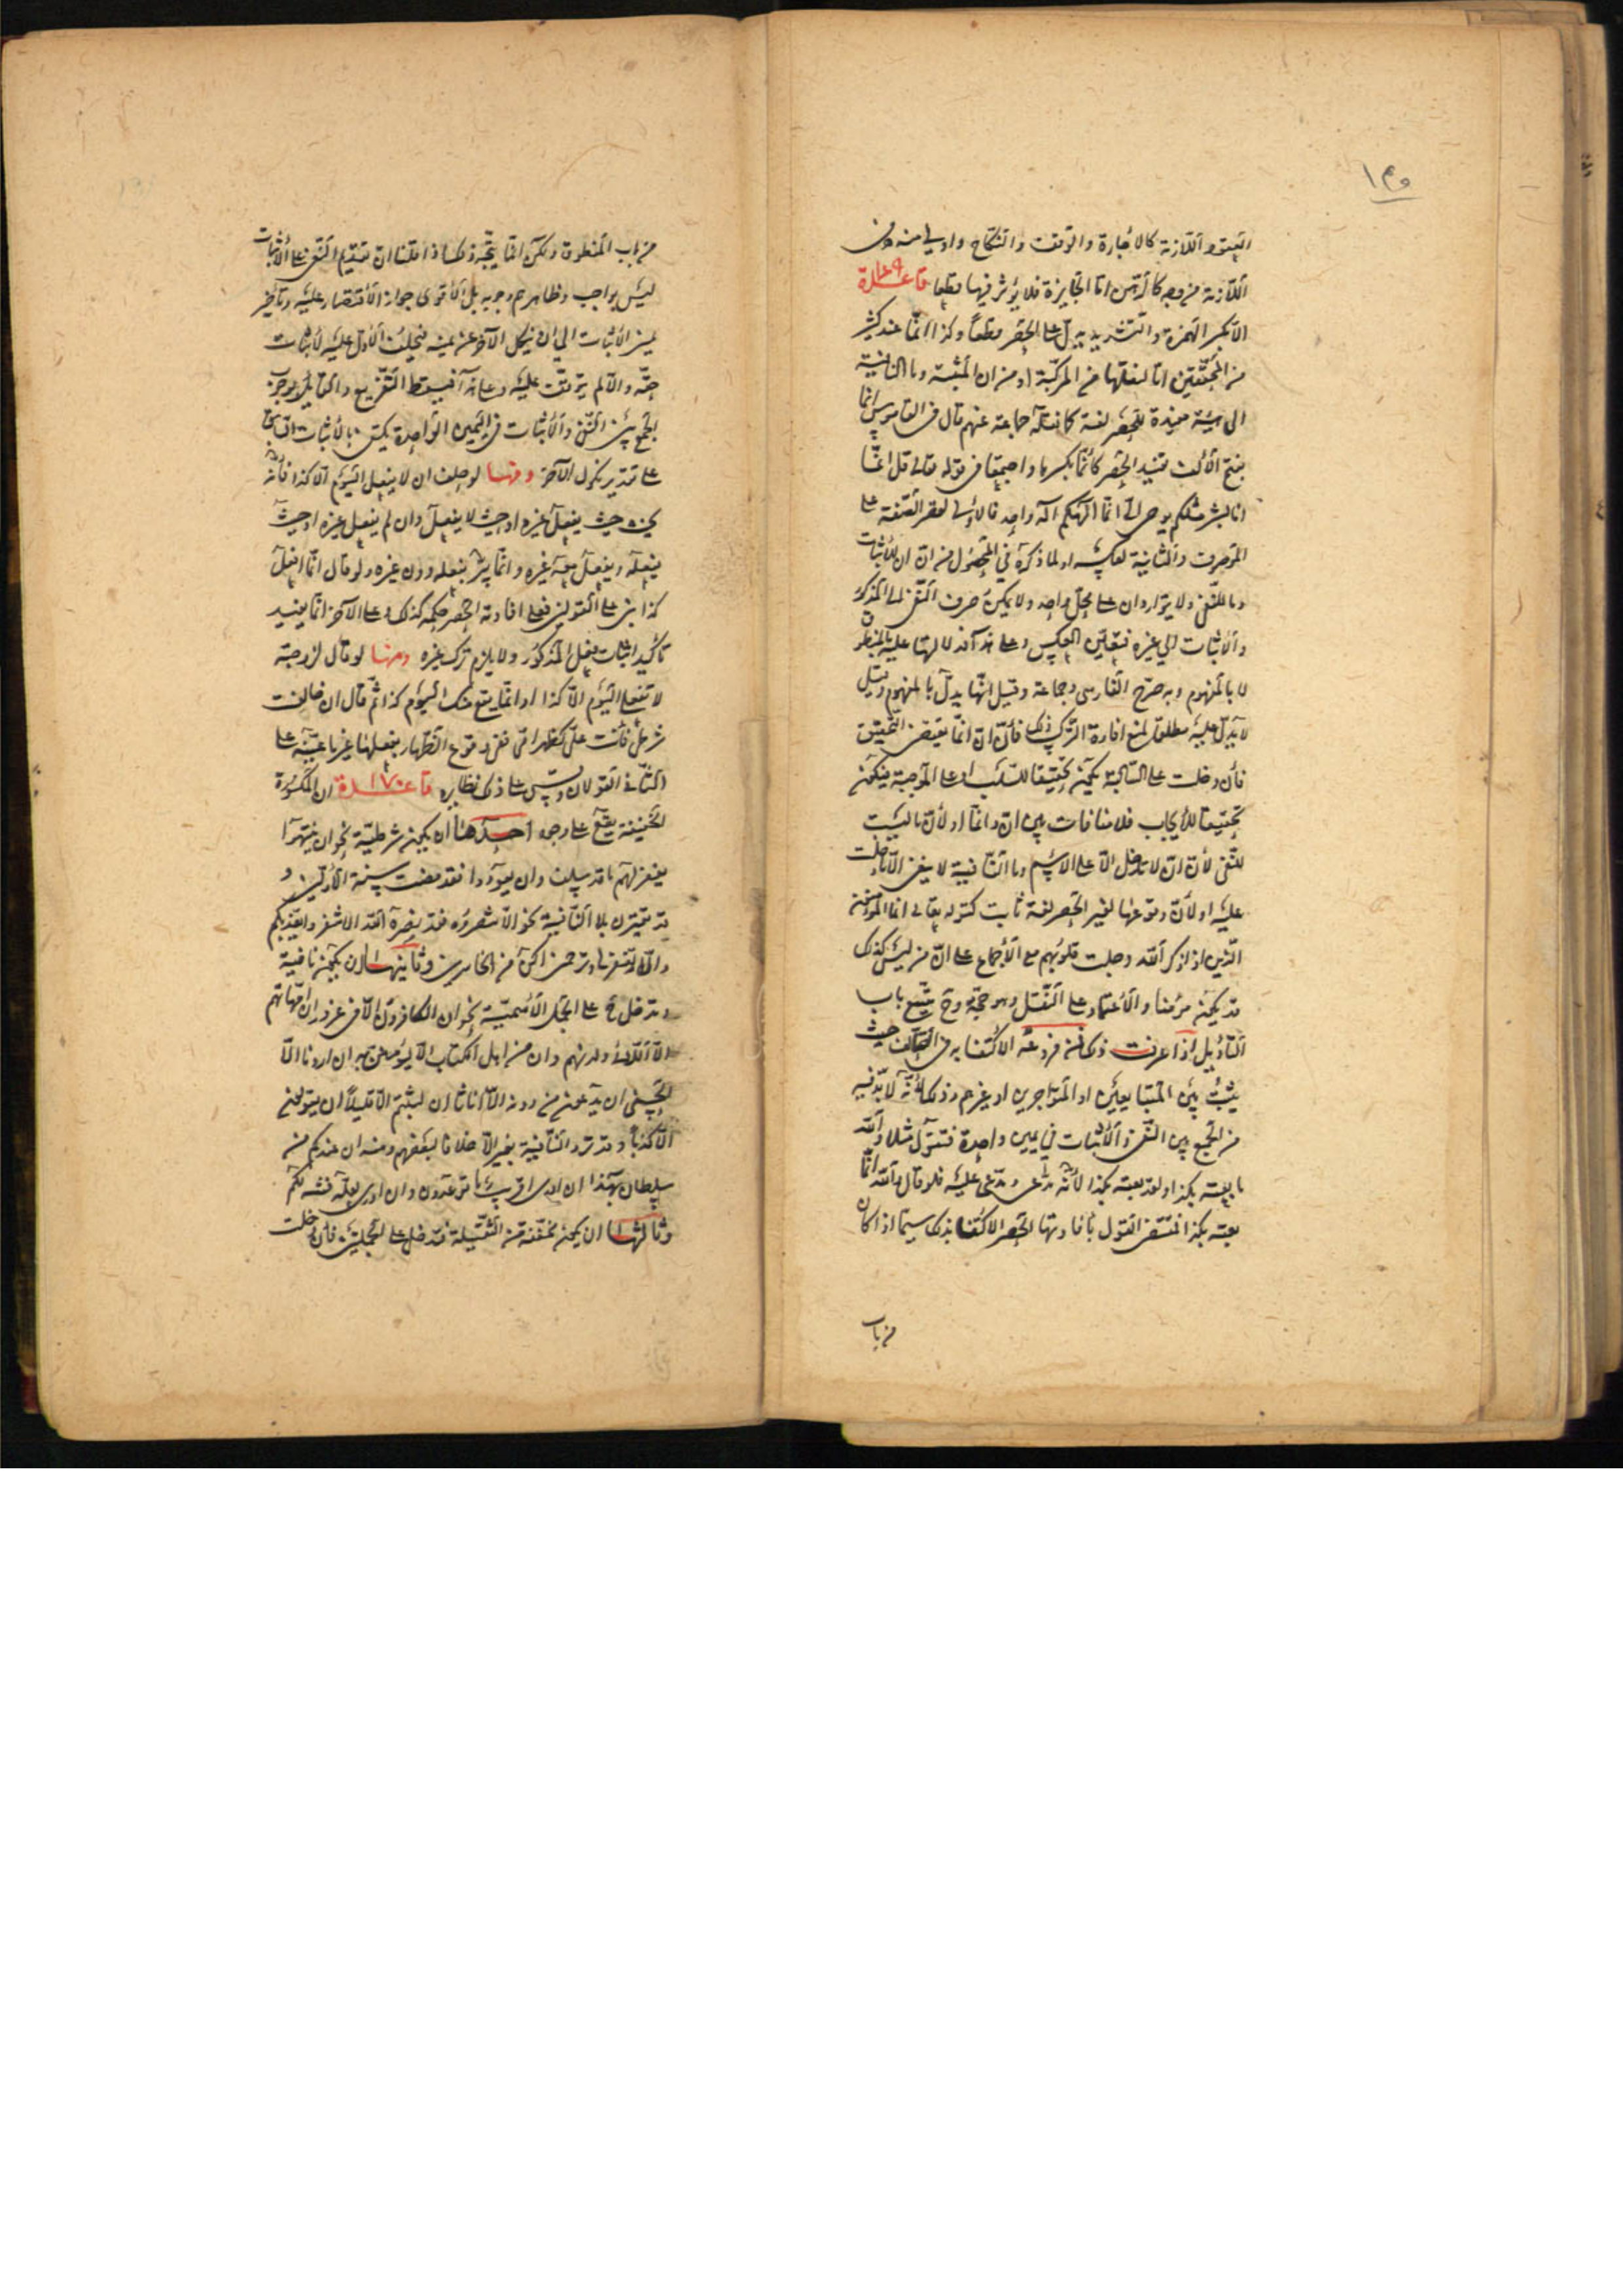 العقود اللازمة كالاجارة والوقف والنكاح واولى منه دون
اللازمة من وجه كالرهن اما الجايزة فلا يؤثر فيها قطعا قاعدة ١٦٩
الا بكسر الهمزة والتشديد يدل على الحصر قطعاً وكذا انما عند كثير
من المحققين اما لنقلها من المركبة او من ان المثبتة وما النافية
الى هيئة مفيدة للحصر لغة كما نقله جماعة عنهم قال في القاموس انما
بفتح الألف تفيد الحصر كانما بكسرها واجتمعا في قوله تعالى قل انما
انا بشر مثلكم يوحى الى انما الهكم اله واحد فالاولى لقصر الصفة على
الموصوف والثانية لعكسه او لما ذكره في المحصول من ان ان للاثبات
وما للنفى ولا يتواردان على محل واحد ولا يمكن صرف النفى الى المذكور
والاثبات الى غيره فتعين العكس وعلى هذا فدلالتها عليه بالمنطوق
لا بالمفهوم وبه صرح الفارسى وجماعة وقيل انها يدل بالمفهوم وقيل
لا يدل عليه مطلقا لمنع افادة التركيب ذلك فان ان انما تقتضى التحقيق
فان دخلت على السالبة يكون تحقيقا للسلب او على الموجبة فيكون
تحقيقا للايجاب فلا منافات بين ان وانما او لان ما ليست
للنفى لان ان لا تدخل الا على الاسم وما النافية لا ينفى الا ما دخلت
عليه او لان وقوعها لغير الحصر لغة ثابت كقوله تعالى انما المؤمنون
الذين اذا ذكر الله وجلت قلوبهم مع الاجماع على ان من ليس كذلك
قد يكون مؤمنا والاعتماد على النقل وهو حجة وح يتسع باب
التأويل اذا عرفت ذلك فمن فروعه الاكتفا به في التحالف حيث
يثبت بين المتبايعين او المتواجرين او غيرهم وذلك لانه لا بد فيه
من الجمع بين النفى والاثبات في يمين واحدة فتقول مثلا والله
ما بعته بكذا ولقد بعته بكذا لانه مدعى ومدعى عليه فلو قال والله انما
بعته بكذا اقتضى القول بافادتها الحصر الاكتفا بذلك سيما اذا كان
من باب
من باب المنطوق ولكن انما يتجه ذلك اذا قلنا ان تقديم النفى على الاثبات
ليس بواجب وظاهرهم وجوبه بل الاقوى جواز الاقتصار عليه وتأخير
يمين الاثبات الى ان ينكل الآخر عن يمينه فيحلف الاول عليه لاثبات
حقه والا لم يتوقف عليه وعلى هذا فيسقط التفريع والقايل بوجوب
الجمع بين النفى والاثبات في اليمين الواحدة يكتفى بالاثبات السابق
على تقدير نكول الآخر ومنها لو حلف ان لا يفعل اليوم الا كذا فانه
يحنث حيث يفعل غيره او حيث لا يفعل وان لم يفعل غيره او حيث
يفعله ويفعل معه غيره وانما يبر بفعله دون غيره ولو قال انما افعل
كذا بنى على القولين فعلى افادته الحصر حكمه كذلك وعلى الآخر انما يفيد
تأكيد اثبات فعل المذكور ولا يلزم ترك غيره ومنها لو قال لزوجته
لا تفعلى اليوم الا كذا او انما يقع منك اليوم كذا ثم قال ان خالفت
شرطى فانت على كظهر امى ففى وقوع الظهار بفعلها غير ما عينه على
الثانى القولان وقس على ذلك نظايره قاعدة ١٧٠ ان المكسورة
الخفيفة يقع على وجوه احدها ان يكون شرطية نحو ان ينتهوا
يغفر لهم ما قد سلف وان يعودوا فقد مضت سنة الاولين و
قد تقترن بلا النافية نحو الا تنصروه فقد نصره الله الا تنفروا يعذبكم
والا تغفر لى وترحمنى اكن من الخاسرين وثانيها ان يكون نافية
وتدخل ح على الجمل الاسمية نحو ان الكافرون الا في غرور ان امهاتهم
الا اللائى ولدنهم وان من اهل الكتاب الا ليؤمنن به ان اردنا الا
الحسنى ان يدعون من دونه الا اناثا ان لبثتم الا قليلا ان يقولون
الا كذبا وقد ترد النافية بغير الا خلافا لبعضهم ومنه ان عندكم من
سلطان بهذا ان ادرى اقريب ما توعدون وان ادرى لعله فتنة لكم
وثالثها ان يكون مخففة من الثقيلة فتدخل على الجملتين فان دخلت